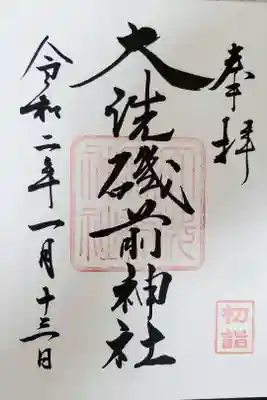 奉拝
大洗磯前神社
令和二年一月十三日
初詣